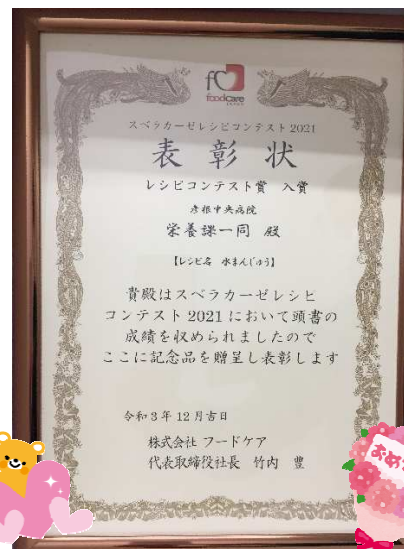 foodcare
スベラカーゼレシピコンテスト2021
表彰状
レシピコンテスト賞 入賞
彦根中央病院
栄養課一同 殿
【レシピ名 水まんじゅう】
貴殿はスベラカーゼレシピ
コンテスト2021において頭書の
成績を収められましたので
ここに記念品を贈呈し表彰します
令和3年12月吉日
株式会社 フードケア
代表取締役社長 竹内 豊